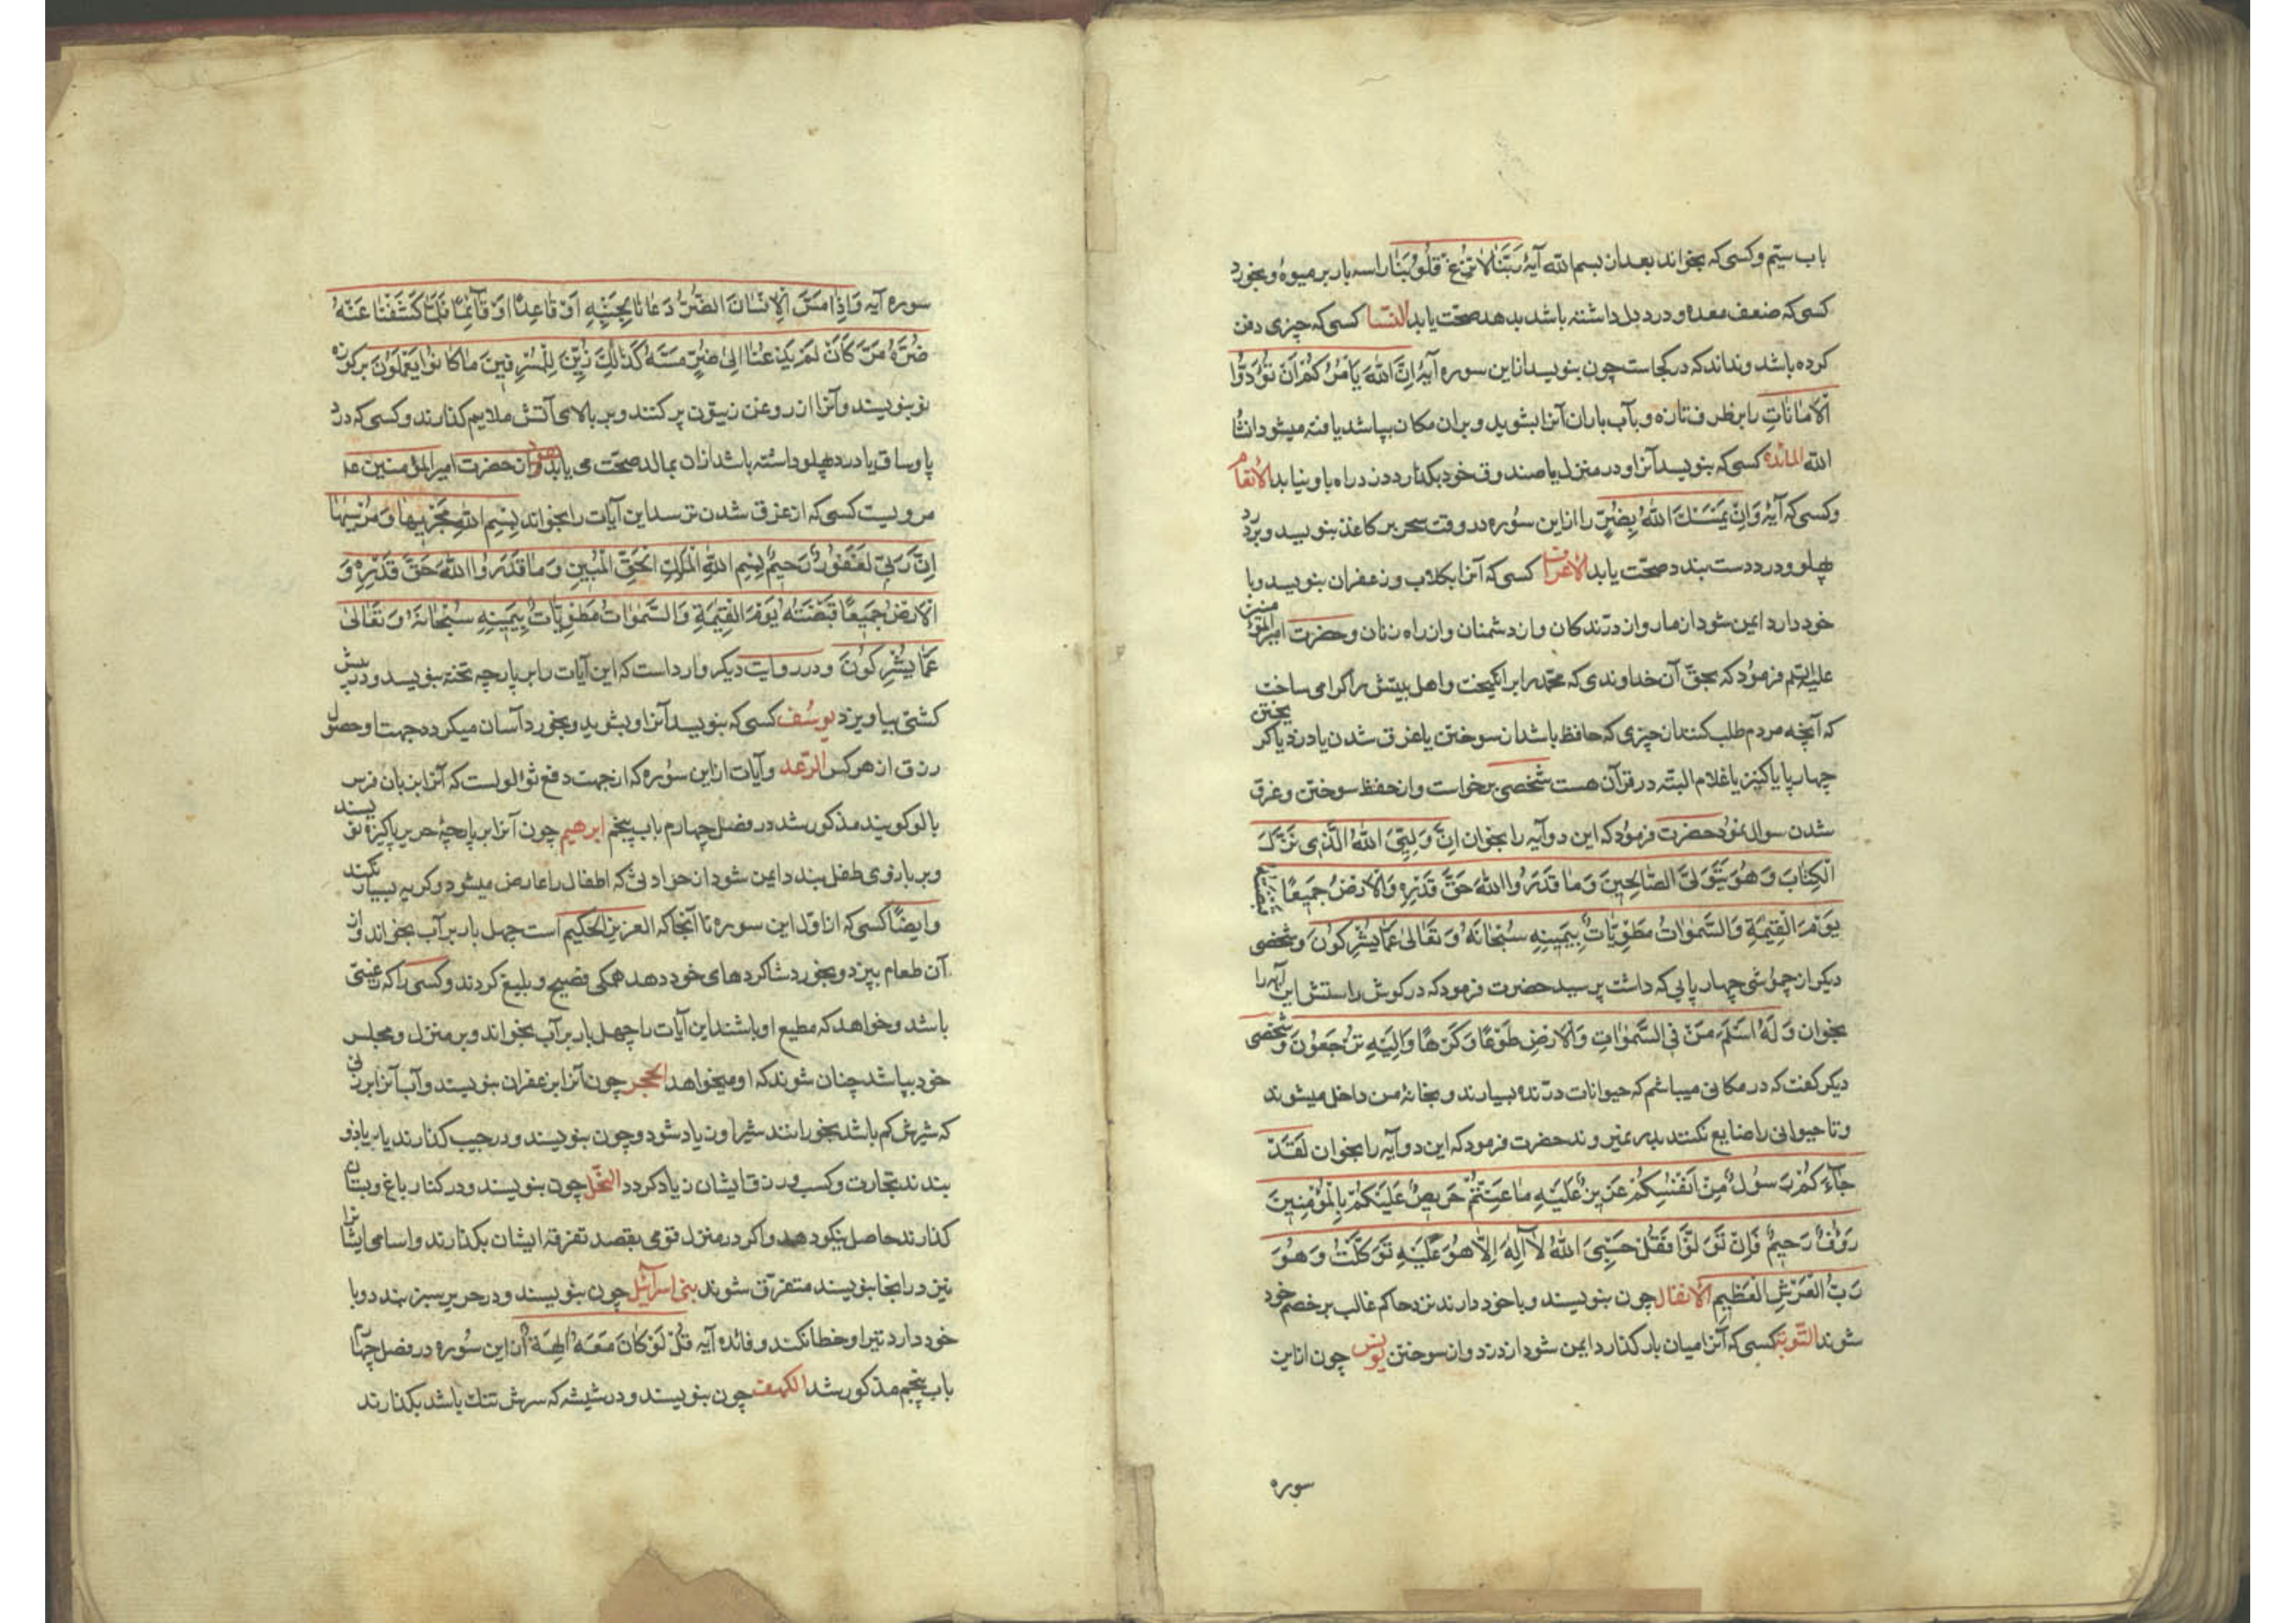 باب سیّم و کسی که بخواند بعد از بسم الله آیهٔ رَبَّنَا لَا تُزِغْ قُلُوبَنَا را سه بار بر میوهٔ و بخورد
کسی که ضعف معده و درد دل داشته باشد بدهد صحّت یابد النّسا کسی که چیزی دفن
کرده باشد و نداند که در کجاست چون بنویسد از این سوره آیهٔ اِنَّ اللهَ یَاْمُرُکُمْ اَنْ تُؤَدُّوا
الْاَمَانَاتِ را بر ظرف تازه و بآب باران آنرا بشوید و بر آن مکان بپاشد یافته میشود انشا
الله المائده کسی که بنویسد آنرا و در منزل یا صندوق خود بگذارد دزد راه باو نیابد الانعام
و کسی که آیهٔ وَاِنْ یَمْسَسْكَ اللهُ بِضُرٍّ را از این سُوره در وقت سحر بر کاغذ بنویسد و بر درد
پهلو و درد دست بندد صحّت یابد الاعراف کسی که آنرا بکلاب و زعفران بنویسد و با
خود دارد ایمن شود از مار و از درّندکان و از دشمنان و از راه زنان و حضرت امیر المؤمنین
علیه السّلم فرمود که بحقّ آن خداوندی که محمّد را برانکیخت و اهل بیتش را کرامی ساخت
که آنچه مردم طلب کنند از چیزی که حافظ باشد از سوختن یا غرق شدن یا دزد یا کریختن
چهارپا یا کنیز یا غلام البتّه در قرآن هست شخصی برخواست و از حفظ سوختن و غرق
شدن سوال نمود حضرت فرمود که این دو آیه را بخوان اِنَّ وَلِیِّیَ اللهُ الَّذِی نَزَّلَ
الْکِتَابَ وَهُوَ یَتَوَلَّی الصَّالِحِینَ وَمَا قَدَرُوا اللهَ حَقَّ قَدْرِهِ وَالْاَرْضُ جَمِیعًا قبضته
یَوْمَ الْقِیٰمَةِ وَالسَّمٰوَاتُ مَطْوِیَّاتٌ بِیَمِینِهِ سُبْحَانَهُ وَتَعَالیٰ عَمَّا یُشْرِکُونَ و شخصی
دیکر از چموشی چهارپایی که داشت پرسید حضرت فرمود که در کوش راستش این آیه را
بخوان وَلَهُ اَسْلَمَ مَنْ فِی السَّمٰوَاتِ وَالْاَرْضِ طَوْعًا وَکَرْهًا وَاِلَیْهِ تُرْجَعُونَ و شخصی
دیکر کفت که در مکانی میباشم که حیوانات درّنده بسیارند و بخانهٔ من داخل میشوند
و تا حیوانی را ضایع نکنند بدر نمیروند حضرت فرمود که این دو آیه را بخوان لَقَدْ
جَآءَکُمْ رَسُولٌ مِنْ اَنْفُسِکُمْ عَزِیزٌ عَلَیْهِ مَا عَنِتُّمْ حَرِیصٌ عَلَیْکُمْ بِالْمُؤْمِنِینَ
رَؤُفٌ رَحِیمٌ فَاِنْ تَوَلَّوْا فَقُلْ حَسْبِیَ اللهُ لَا اِلٰهَ اِلَّا هُوَ عَلَیْهِ تَوَکَّلْتُ وَهُوَ
رَبُّ الْعَرْشِ الْعَظِیمِ الانفال چون بنویسند و با خود دارند نزد حاکم غالب بر خصم خود
شوند التّوبة کسی که آنرا میان بار کذارد ایمن شود از دزد و از سوختن یونس چون از این
سوره
سوره آیه وَاِذَا مَسَّ الْاِنْسَانَ الضُّرُّ دَعَانَا بِجَنْبِهِ اَوْ قَاعِدًا اَوْ قَآئِمًا فَلَمَّا کَشَفْنَا عَنْهُ
ضُرَّهُ مَرَّ کَانْ لَمْ یَدْعُنَا اِلیٰ ضُرٍّ مَسَّهُ کَذٰلِكَ زُیِّنَ لِلْمُسْرِفِینَ مَا کَانُوا یَعْمَلُونَ بر کوزه
نو بنویسند و آنرا از روغن زیتون پر کنند و بر بالای آتش ملایم کذارند و کسی که درد
پا و ساق یا درد پهلو داشته باشد از آن بمالد صحّت می یابد هود و از حضرت امیر المؤمنین ع
مرویست کسی که از غرق شدن ترسد این آیات را بخواند بِسْمِ اللهِ مَجْرٰیهَا وَمُرْسٰیهَا
اِنَّ رَبِّی لَغَفُورٌ رَحِیمٌ بِسْمِ اللهِ الْمَلِكِ الْحَقِّ الْمُبِینِ وَمَا قَدَرُوا اللهَ حَقَّ قَدْرِهِ وَ
الْاَرْضُ جَمِیعًا قَبْضَتُهُ یَوْمَ الْقِیٰمَةِ وَالسَّمٰوَاتُ مَطْوِیَّاتٌ بِیَمِینِهِ سُبْحَانَهُ وَتَعَالیٰ
عَمَّا یُشْرِکُونَ و در روایت دیکر وارد است که این آیات را بر پارچه تخته بنویسد و در پیش
کشتی بیاویزد یوسُف کسی که بنویسد آنرا و بشوید و بخورد آسان میکردد جهت او حصول
رزق از هر کس الرّعد و آیات از این سُوره که از جهت دفع ثوالولست که آنرا بزبان فرس
بالو کویند مذکور شد در فصل چهارم باب پنجم ابرهیم چون آنرا بر پارچهٔ حریر پاکیزه نویسند
و بر بازوی طفل بندد ایمن شود از حوادثی که اطفال را عارض میشود و کریه بسیار نکند
و ایضًا کسی که از اوّل این سوره تا آنجا که العزیز الحکیم است چهل بار بر آب بخواند و از
آن طعام بپزد و بخورد شاکردهای خود دهد همکی فصیح و بلیغ کردند و کسی را که رعیّتی
باشد و خواهد که مطیع او باشند این آیات را چهل بار بر آب بخواند و بر منزل و مجلس
خود بپاشد چنان شوند که او میخواهد الحجر چون آنرا بزعفران بنویسند و آب آنرا بزنی
که شیرش کم باشد بخورانند شیر او زیاد شود و چون بنویسند و در جیب کذارند یا ببازو
بندند تجارت و کسب و رزق ایشان زیاد کردد النّحل چون بنویسند و در کنار باغ و بستان
کذارند حاصل نیکو دهد و اکر در منزل قومی بقصد تفرقهٔ ایشان بکذارند و اسامی ایشانرا
نیز در اینجا بنویسند متفرّق شوند بنی اسرآئیل چون بنویسند و در حریر سبز بندد و با
خود دارد تیر او خطا نکند و فائده آیه قُلْ لَوْ کَانَ مَعَهُ اٰلِهَةٌ از این سُوره در فصل چهارم
باب پنجم مذکور شد الکهف چون بنویسند و در شیشه که سرش تنك باشد بکذارند